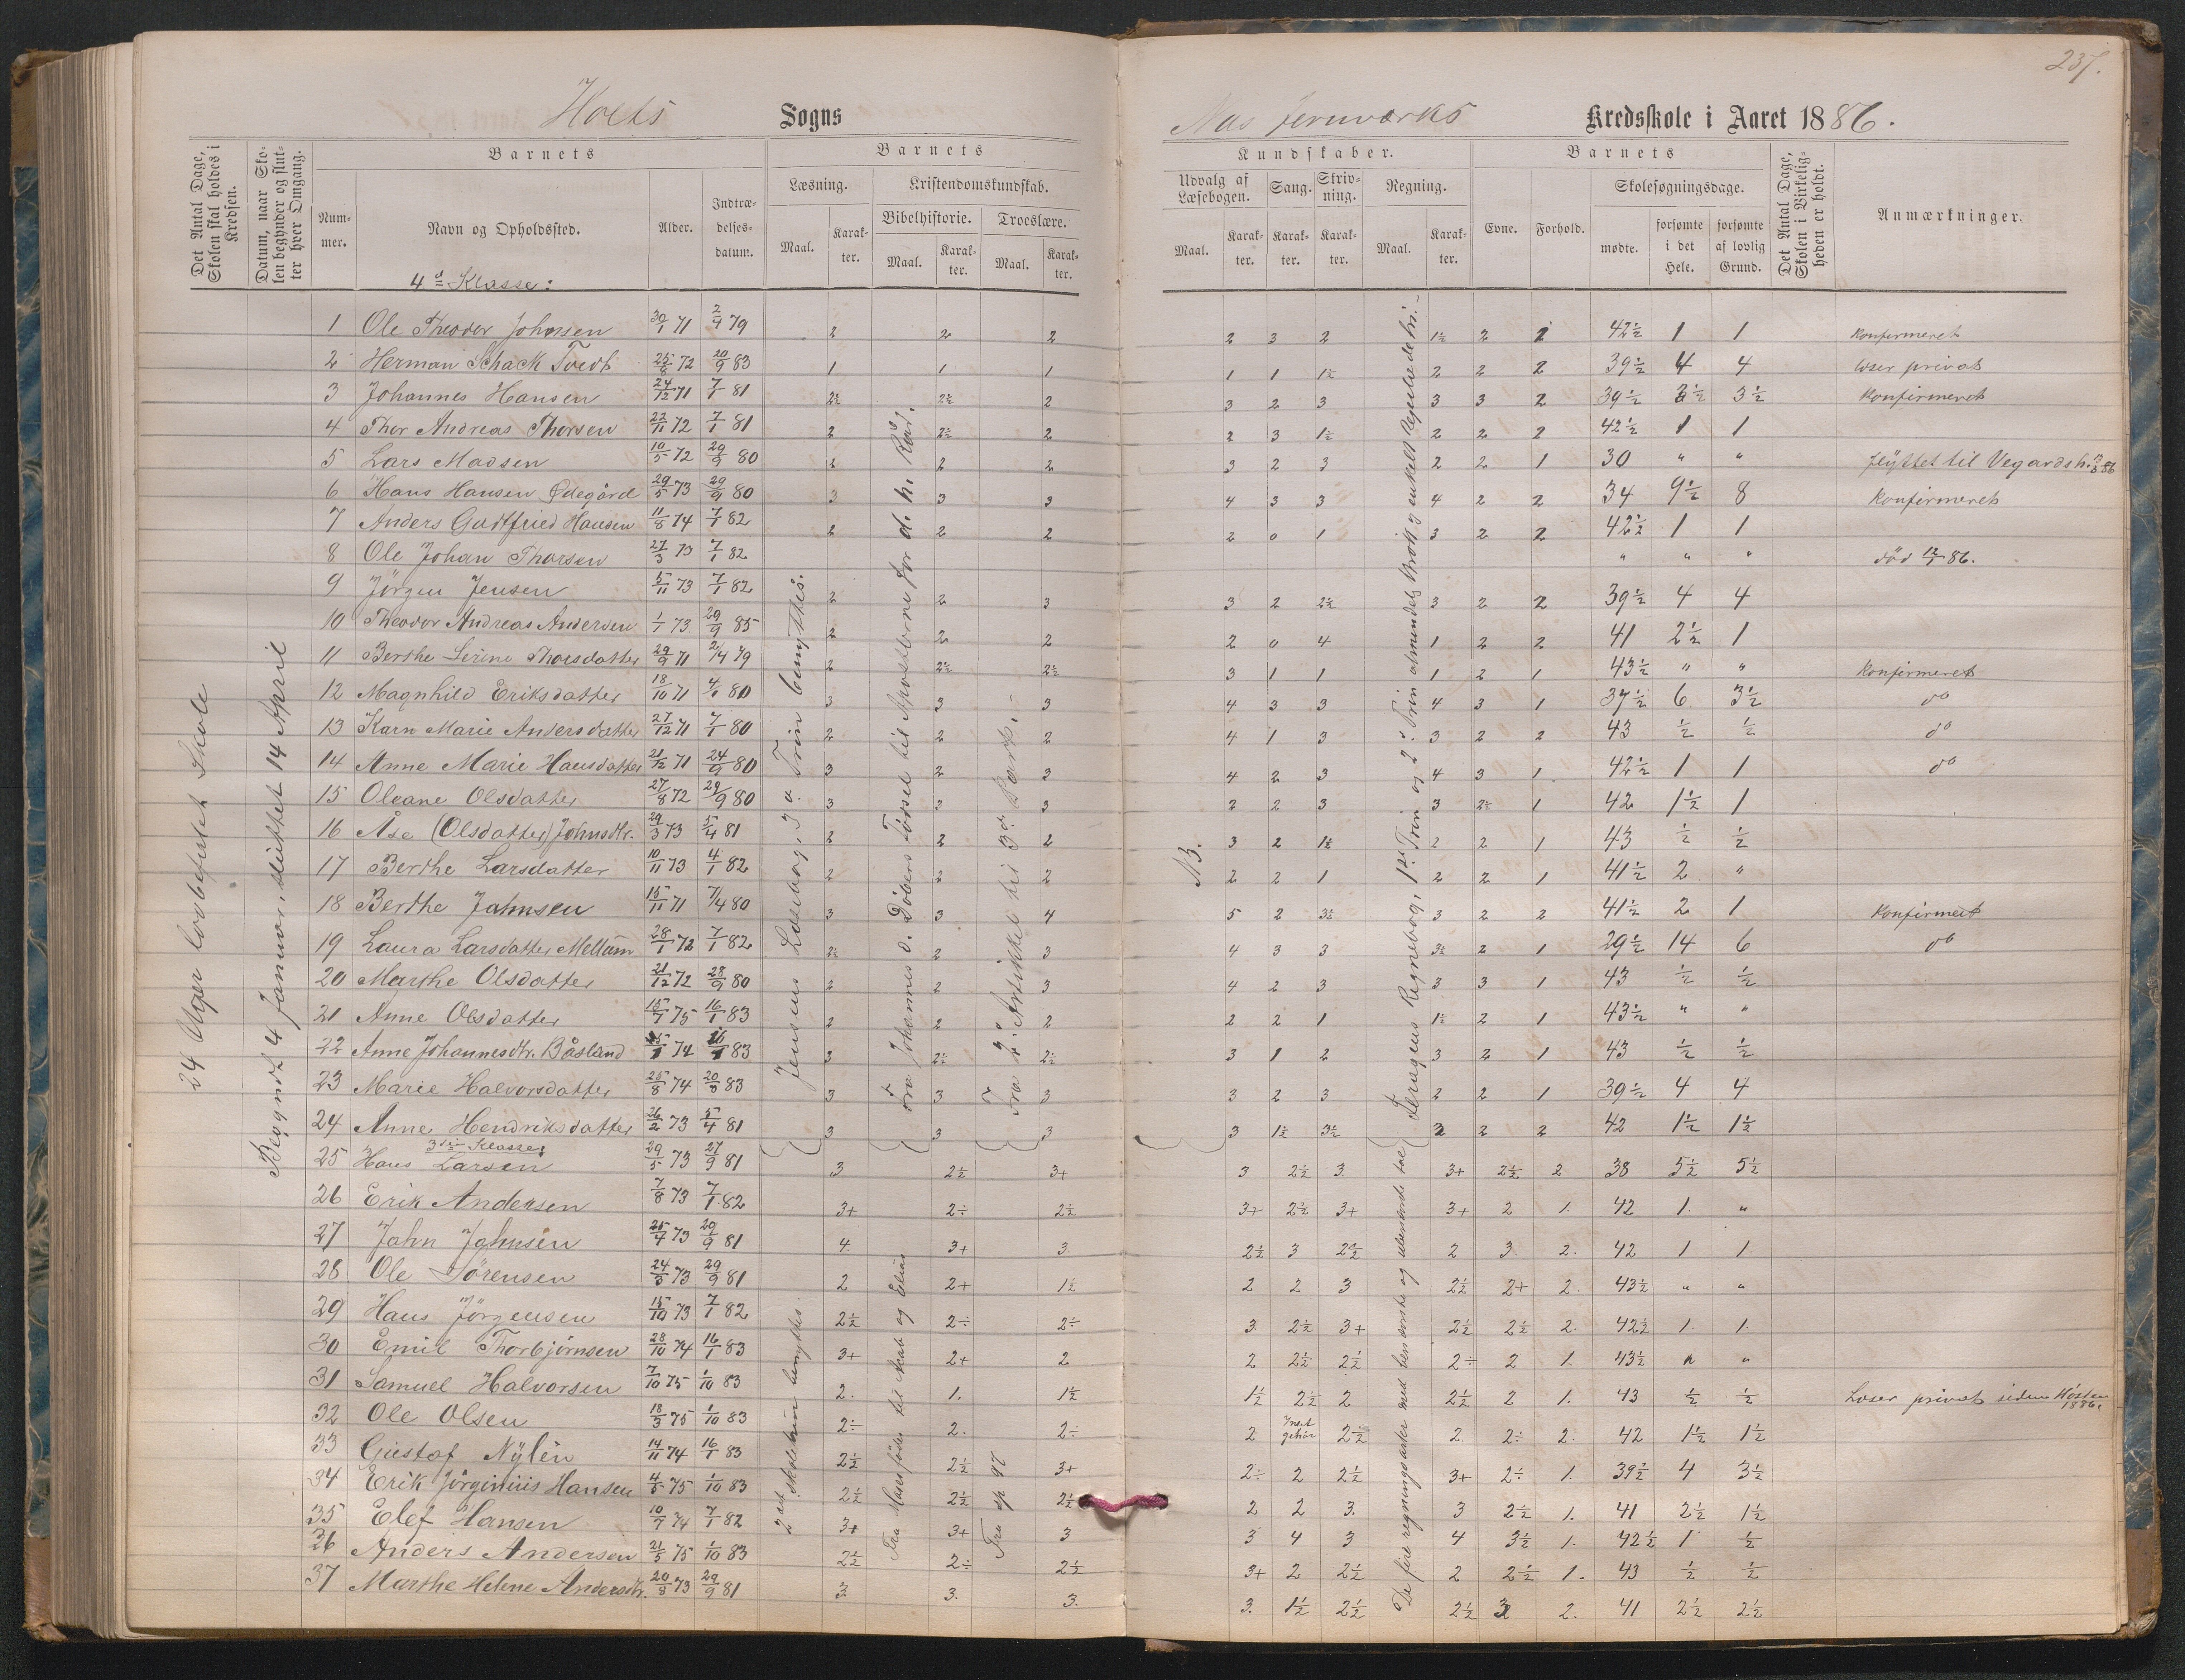 237.
Holts Sogns
Næs Jernværks Kredsskole i Aaret 1886.
Det Antal Dage, Skolen skal holdes i Kredsen.
Datum, naar Skolen begynder og slutter hver Omgang.
Barnets
Nummer.
Navn og Opholdssted.
Alder.
Indtrædelsesdatum.
Barnets
Læsning.
Kristendomskundskab.
Bibelhistorie.
Troeslære.
Maal.
Karakter.
Maal.
Karakter.
Maal.
Karakter.
Kundskaber.
Udvalg af Læsebogen.
Sang.
Skrivning.
Regning.
Maal.
Karakter.
Karakter.
Karakter.
Maal.
Karakter.
Barnets
Evne.
Forhold.
Skolesøgningsdage.
mødte.
forsømte i det Hele.
forsømte af lovlig Grund.
Det Antal Dage, Skolen i Virkeligheden er holdt.
Anmærkninger.
24 Uger lovbefalet Skole
Begyndt 4 Januar, sluttet 14 April
Jensens Læsebog, I a. Trin benyttes.
Fra Johannes d. Døbers Førsel til Apostlerne før d. h. Kår.
Fra 2. Artikkel til 3die Park.
N3.
2det skoletrin benyttes
4de Klasse:
1 Ole Theodor Johnsen 30/1 71 2/4 79 2 2 2 2 3 2 1½ 2 2 42½ 1 1 Konfirmeret
2 Herman Schack Tvedt 25/8 72 20/9 83 1 1 1 1 1 1½ 2 2 2 39½ 4 4 læser privat
3 Johannes Hansen 24/12 71 7/1 81 2½ 2½ 2 3 2 3 3 3 2 39½ 3½ 3½ Konfirmeret
4 Thor Andreas Thorsen 27/11 72 7/1 81 2 2½ 2 2 3 1½ 2 2 2 42½ 1 1
5 Lars Madsen 10/5 72 29/9 80 2 2 2 3 2 3 2 2 1 30 " " flyttet til Vegardsh.
6 Hans Hansen Ødegård 29/5 73 29/9 80 3 3 3 4 3 3 4 2 2 34 9½ 8 Konfirmeret
7 Anders Gudtfried Hansen 11/8 74 7/1 82 2 2 2 2 0 1 3 2 2 42½ 1 1
8 Ole Johan Thorsen 27/3 73 7/1 82 " " " død 12/1 86.
9 Jörgen Jensen 5/11 73 7/1 82 2 2 3 3 2 2½ 3 2 2 39½ 4 4
10 Theodor Andreas Andersen 1/1 73 29/9 85 2 2 2 2 0 4 1 2 2 41 2½ 1
11 Berthe Serine Thorsdatter 29/9 71 2/4 79 2 2½ 2½ 3 1 1 1 2 1 43½ " " Konfirmeret
12 Magnhild Eriksdatter 18/10 71 4/1 80 3 3 3 4 3 3 4 3 1 37½ 6 3½ do
13 Karn Marie Andersdatter 27/12 71 7/1 80 2 2 2 4 1 3 3 2 2 43 ½ ½ do
14 Anne Marie Hansdatter 21/12 71 24/9 80 3 2 3 4 2 3 4 3 1 42½ 1 1 do
15 Oleane Olsdatter 27/8 72 29/9 80 3 3 3 2 2 3 3 2½ 1 42 1½ 1
16 Åse (Olsdatter) Johnsdtr. 29/3 73 5/4 81 2 2 2 3 2 1½ 2 2 1 43 ½ ½
17 Berthe Larsdatter 10/11 73 4/1 82 2 2 2 2 2 1 2 2 1 41½ 2 "
18 Berthe Jahnsen 15/11 71 7/4 80 3 3 4 5 2 3½ 3 2 2 41½ 2 1 Konfirmert
19 Laura Larsdatter Mellum 28/1 72 7/1 82 2½ 2 3 4 3 3 3½ 2 1 29½ 14 6 do
20 Marthe Olsdatter 21/12 72 28/9 80 2 2 3 4 2 3 3 3 1 43 ½ ½
21 Anne Olsdatter 15/7 75 16/1 83 2 2 2 2 2 1 1½ 2 1 43½ " "
22 Anne Johannesdtr. Båsland 74 83 3 2½ 2½ 3 1 2 3 2 1 43 ½ ½
23 Marie Halvorsdatter 25/8 74 20/3 83 3 3 3 3 2 3 2 2 1 39½ 4 4
24 Anne Hendriksdatter 26/2 73 5/4 81 3 3 3 3 1½ 3½ 3 2 2 42 1½ 1½
3die Klasse:
25 Hans Larsen 29/5 73 27/9 81 3 2½ 3+ 3 2½ 3 3+ 2½ 2 38 5½ 5½
26 Erik Andersen 7/8 73 7/1 82 3+ 2÷ 2½ 3+ 2½ 3+ 3+ 2 1. 42 1. "
27 Jahn Jahnsen 25/7 73 29/9 81 4. 3+ 3 2½ 3 2½ 2 3 2. 42 1 1
28 Ole Sörensen 24/5 73 29/9 81 2 2+ 1½ 2 2 3 2½ 2+ 2. 43½ " "
29 Hans Jörgensen 15/10 73 7/1 82 2½ 2÷ 2÷ 3. 2½ 3+ 2½ 2½ 2. 42½ 1. 1.
30 Emil Thorbjörnsen 28/10 74 16/1 83 3+ 2+ 2 2 2½ 2½ 2÷ 2 1. 43½ " "
31 Samuel Halvorsen 7/10 75 1/10 83 2. 1. 1½ 1½ 2½ 2 2½ 2 1. 43 ½ ½ Læser privat siden Høsten 1886.
32 Ole Olsen 18/3 75 1/10 83 2÷ 2. 2÷ 2 Intet gehør 2½ 2. 2÷ 2. 42 1½ 1½
33 Gustaf Nylén 14/11 74 16/1 83 2½ 2½ 3+ 2÷ 2 2½ 3+ 2÷ 1. 39½ 4 3½
34 Erik Jörginius Hansen 4/5 75 1/10 83 2½ 2½ 2½ 2 2 3. 3 2½ 1. 41 2½ 1½
35 Elef Hansen 10/7 74 7/1 82 3+ 3+ 3 3 4 3 4 3½ 1. 42½ 1 ½
36 Anders Andersen 21/5 75 1/10 83 2½ 2÷ 2½ 3+ 2 2½ 2 2½ 1. 43 ½ ½
37 Marthe Helene Andersdtr. 20/8 73 29/9 81 3. 3. 3. 3. 1½ 2½ 2½ 3 2. 41 2½ 2½